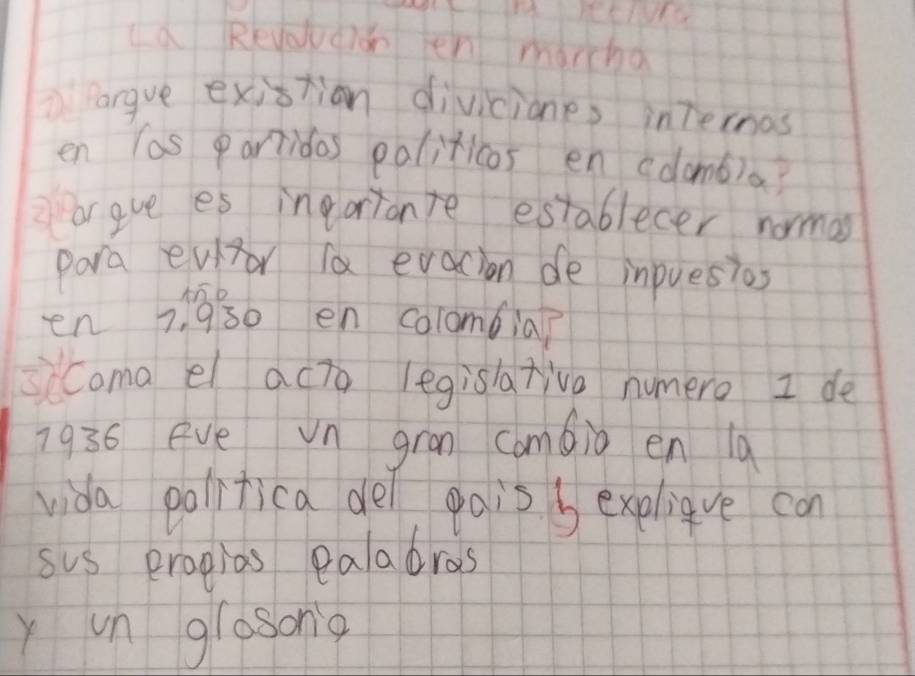 la lectura
La Revolución en marcha
1) Porque existian diviciones internas
en los partidos politicos en colombia?
2) Porque es inportante establecer normas
para evitar la evacion de inpuestos
en año 1.930 en colombia?
3) Como el acto legislativo numero 1 de
1936 fue un gran cambio en la
vida politica del pais y explique con
sus propias palabras
y un glosario